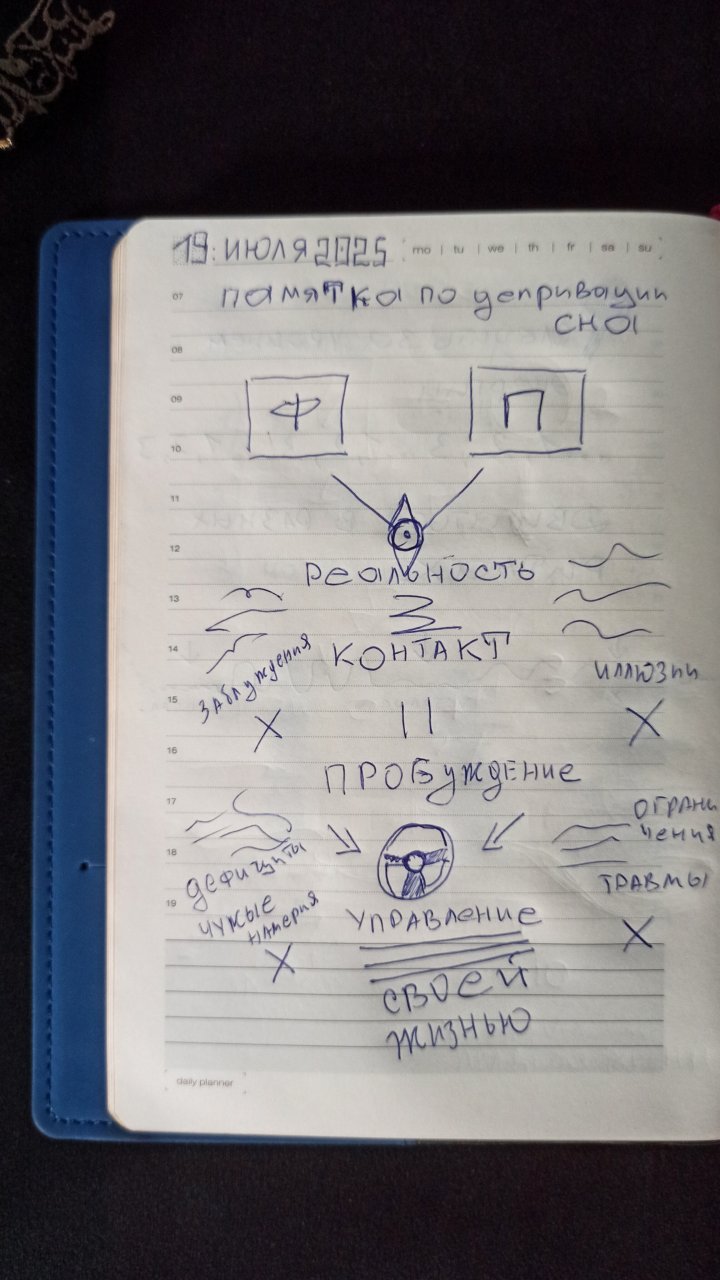 19 ИЮЛЯ 2025
mo | tu | we | th | fr | sa | su
07
ПАМЯТКА ПО депривации
СНА
08
09
Ф
П
10
11
12
РЕАЛЬНОСТЬ
13
14
КОНТАКТ
ЗАБЛУЖДЕНИЯ
ИЛЛЮЗИИ
15
X
X
16
ПРОБУЖДЕНИЕ
17
ОГРАНИ
ЧЕНИЯ
18
ДЕФИЦИТЫ
ТРАВМЫ
19
ЧУЖЫЕ
УПРАВЛЕНИЕ
X
X
СВОЕЙ
ЖИЗНЬЮ
daily planner